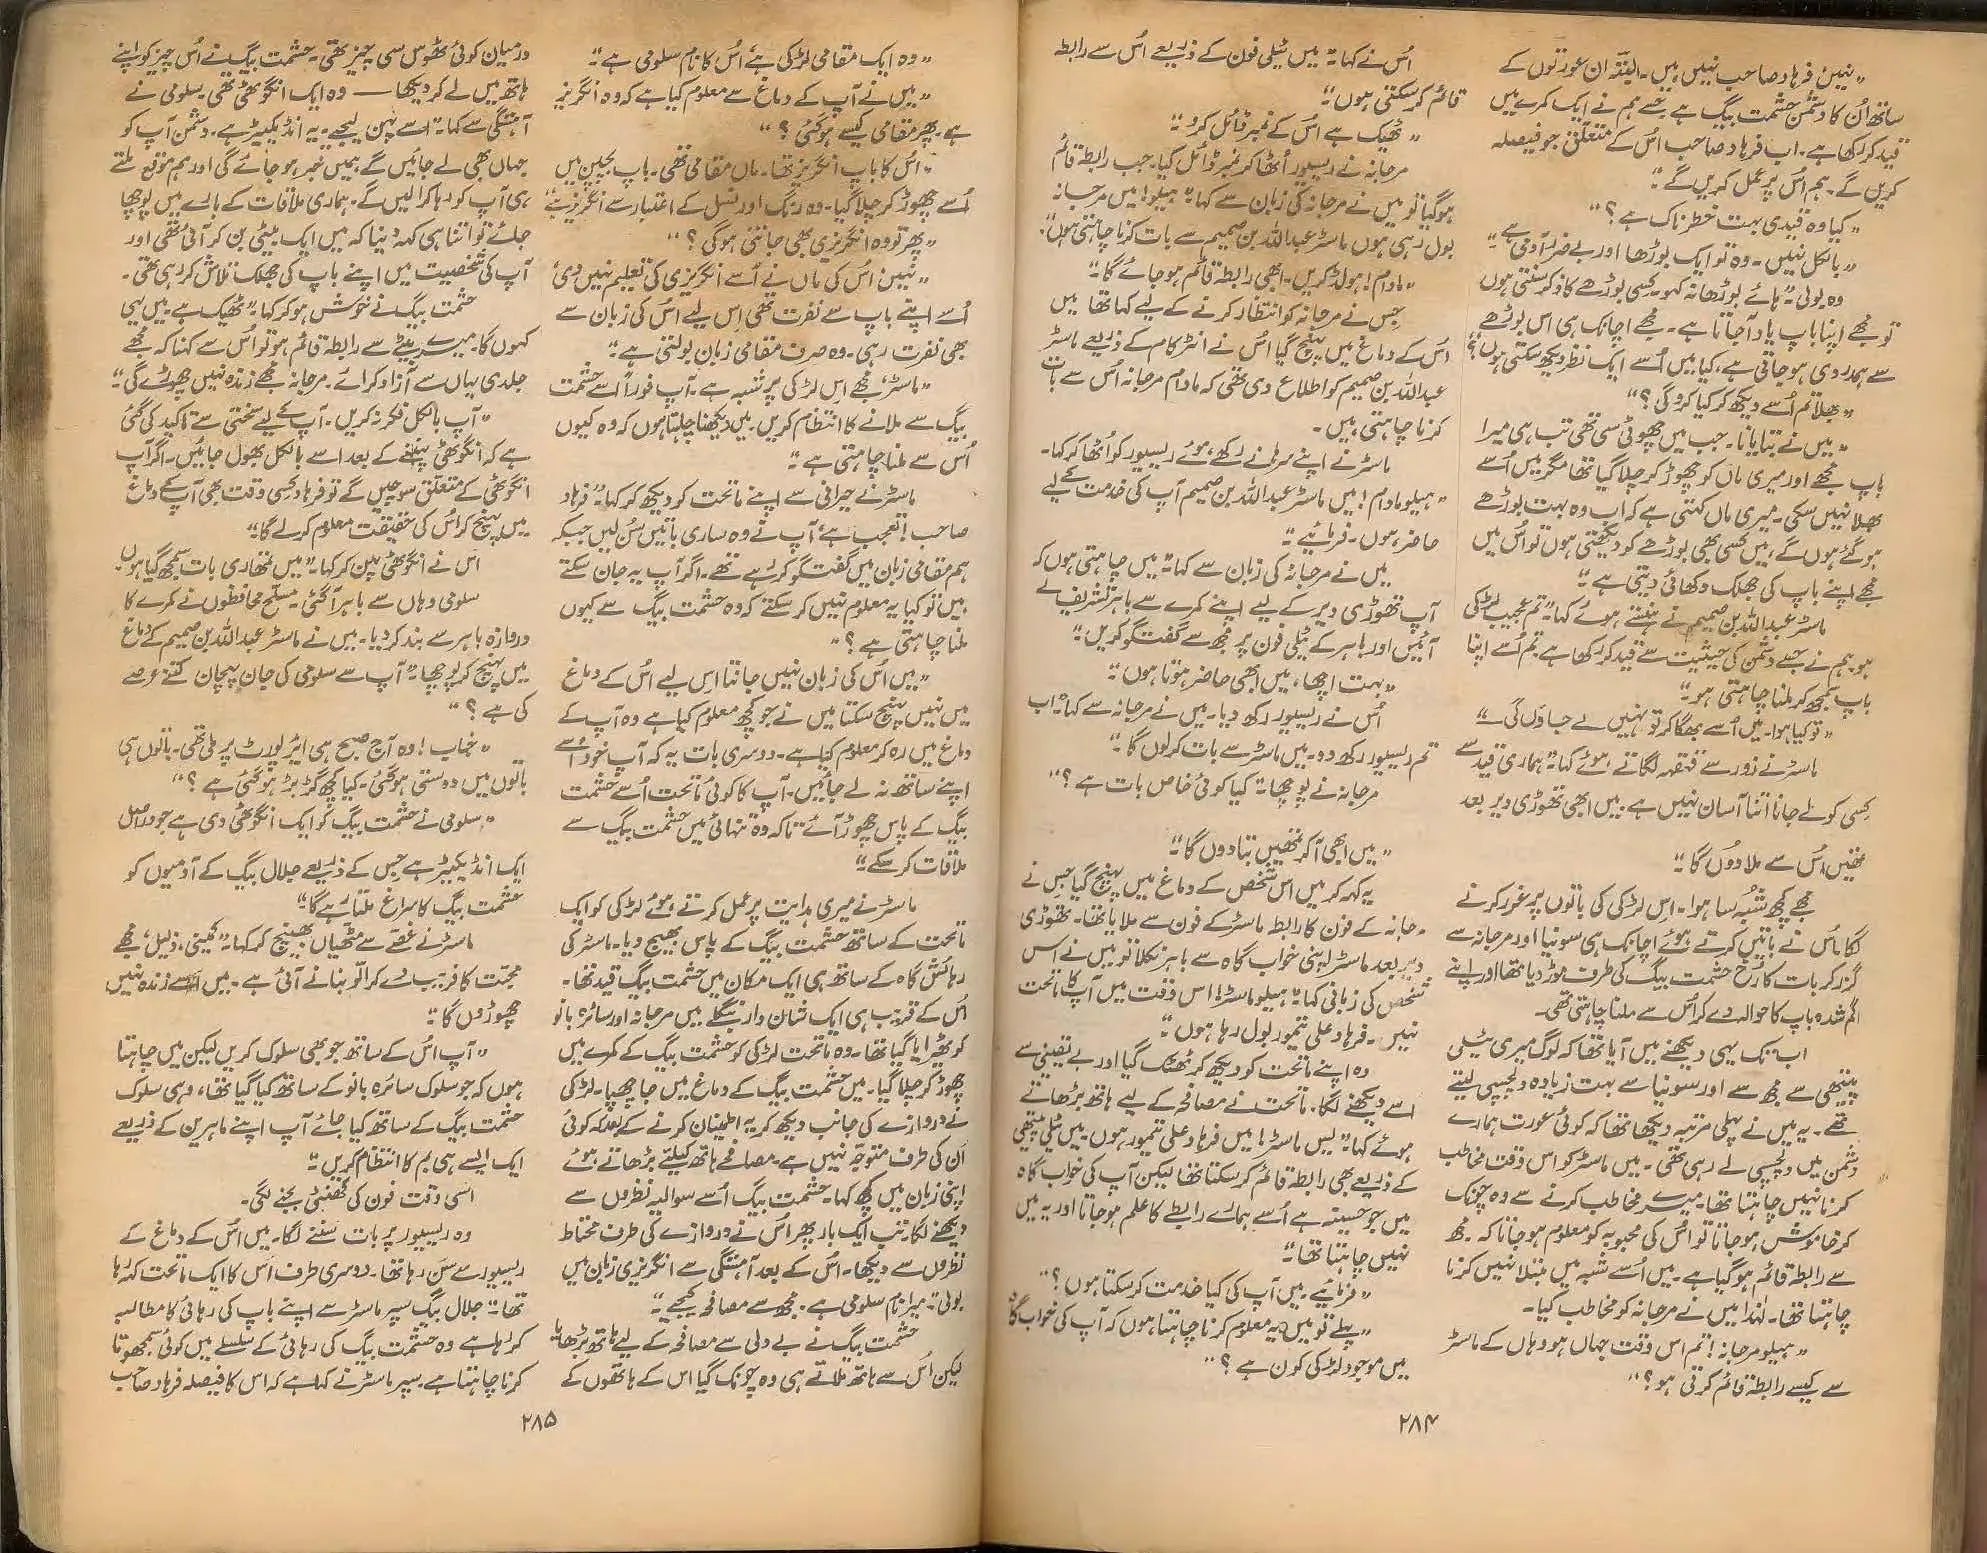 "نہیں فرہاد صاحب نہیں ہیں۔ البتہ ان عورتوں کے
ساتھ اُن کا دشمن حشمت بیگ ہے جسے ہم نے ایک کمرے میں
قید کر رکھا ہے۔ اب فرہاد صاحب اس کے متعلق جو فیصلہ
کریں گے۔ ہم اُس پر عمل کریں گے"
"کیا وہ قیدی بہت خطرناک ہے؟"
"بالکل نہیں۔ وہ تو ایک بوڑھا اور بے ضرر آدمی ہے"
وہ بولی "ہائے بوڑھا نہ کہو۔ کسی بوڑھے کا ذکر سنتی ہوں
تو مجھے اپنا باپ یاد آجاتا ہے۔ مجھے اچانک ہی اس بوڑھے
سے ہمدردی ہو جاتی ہے، کیا میں اُسے ایک نظر دیکھ سکتی ہوں؟"
"بھلا تم اُسے دیکھ کر کیا کرو گی؟"
"میں نے بتایا نا۔ جب میں چھوٹی سی تھی تب ہی میرا
باپ مجھے اور میری ماں کو چھوڑ کر چلا گیا تھا مگر میں اُسے
بھلا نہیں سکی۔ میری ماں کہتی ہے کہ اب وہ بہت بوڑھے
ہو گئے ہوں گے، میں کسی بھی بوڑھے کو دیکھتی ہوں تو اُس میں
مجھے اپنے باپ کی جھلک دکھائی دیتی ہے"
ماسٹر عبداللہ بن صمیم نے ہنستے ہوئے کہا "تم عجیب لڑکی
ہو۔ ہم نے جسے دشمن کی حیثیت سے قید کر رکھا ہے تم اُسے اپنا
باپ سمجھ کر ملنا چاہتی ہو"
"تو کیا ہوا۔ میں اُسے بھگا کر تو نہیں لے جاؤں گی"
ماسٹر نے زور سے قہقہہ لگاتے ہوئے کہا "ہماری قید سے
کسی کو لے جانا اتنا آسان نہیں ہے۔ میں ابھی تھوڑی دیر بعد
تمہیں اُس سے ملا دوں گا"
مجھے کچھ شبہ سا ہوا۔ اس لڑکی کی باتوں پر غور کرنے
لگا۔ اُس نے باتیں کرتے ہوئے اچانک ہی سونیا اور مرجانہ سے
گزر کر بات کا رُخ حشمت بیگ کی طرف موڑ دیا تھا اور اپنے
گم شدہ باپ کا حوالہ دے کر اُس سے ملنا چاہتی تھی۔
اب تک یہی دیکھنے میں آیا تھا کہ لوگ میری ٹیلی
پیتھی سے مجھ سے اور سونیا سے بہت زیادہ دلچسپی لیتے
تھے۔ یہ میں نے پہلی مرتبہ دیکھا تھا کہ کوئی عورت ہمارے
دشمن میں دلچسپی لے رہی تھی۔ میں ماسٹر کو اس وقت مخاطب
کرنا نہیں چاہتا تھا۔ میرے مخاطب کرنے سے وہ چونک
کر خاموش ہو جاتا تو اُس کی محبوبہ کو معلوم ہو جاتا کہ مجھ
سے رابطہ قائم ہو گیا ہے۔ میں اُسے شبہ میں مبتلا نہیں کرنا
چاہتا تھا۔ لہٰذا میں نے مرجانہ کو مخاطب کیا۔
"ہیلو مرجانہ! تم اس وقت جہاں ہو وہاں کے ماسٹر
سے کیسے رابطہ قائم کرتی ہو؟"
اُس نے کہا "میں ٹیلی فون کے ذریعے اُس سے رابطہ
قائم کر سکتی ہوں"
"ٹھیک ہے اُس کے نمبر ڈائل کرو"
مرجانہ نے ریسیور اُٹھا کر نمبر ڈائل کیا۔ جب رابطہ قائم
ہو گیا تو میں نے مرجانہ کی زبان سے کہا "ہیلو! میں مرجانہ
بول رہی ہوں ماسٹر عبداللہ بن صمیم سے بات کرنا چاہتی ہوں"
"مادام! ہولڈ کریں۔ ابھی رابطہ قائم ہو جائے گا"
جس نے مرجانہ کو انتظار کرنے کے لیے کہا تھا میں
اُس کے دماغ میں پہنچ گیا اُس نے انٹرکام کے ذریعے ماسٹر
عبداللہ بن صمیم کو اطلاع دی تھی کہ مادام مرجانہ اُس سے بات
کرنا چاہتی ہیں۔
ماسٹر نے اپنے سرہانے رکھے ہوئے ریسیور کو اُٹھا کر کہا۔
"ہیلو مادام! میں ماسٹر عبداللہ بن صمیم آپ کی خدمت کے لیے
حاضر ہوں۔ فرمائیے"
میں نے مرجانہ کی زبان سے کہا "میں چاہتی ہوں کہ
آپ تھوڑی دیر کے لیے اپنے کمرے سے باہر تشریف لے
آئیں اور باہر کے ٹیلی فون پر مجھ سے گفتگو کریں"
"بہت اچھا، میں ابھی حاضر ہوتا ہوں"
اُس نے ریسیور رکھ دیا۔ میں نے مرجانہ سے کہا "اب
تم ریسیور رکھ دو۔ میں ماسٹر سے بات کر لوں گا"
مرجانہ نے پوچھا "کیا کوئی خاص بات ہے؟"
"میں ابھی آ کر تمھیں بتا دوں گا"
یہ کہہ کر میں اس شخص کے دماغ میں پہنچ گیا جس نے
مرجانہ کے فون کا رابطہ ماسٹر کے فون سے ملایا تھا۔ تھوڑی
دیر بعد ماسٹر اپنی خواب گاہ سے باہر نکلا تو میں نے اس
شخص کی زبانی کہا "ہیلو ماسٹر! اس وقت میں آپ کا ماتحت
نہیں۔ فرہاد علی تیمور بول رہا ہوں"
وہ اپنے ماتحت کو دیکھ کر ٹھٹک گیا اور بے یقینی سے
اسے دیکھنے لگا۔ ماتحت نے مصافحہ کے لیے ہاتھ بڑھاتے
ہوئے کہا "یس ماسٹر! میں فرہاد علی تیمور ہوں۔ میں ٹیلی پیتھی
کے ذریعے بھی رابطہ قائم کر سکتا تھا لیکن آپ کی خواب گاہ
میں جو حسینہ ہے اُسے ہمارے رابطے کا علم ہو جاتا اور یہ میں
نہیں چاہتا تھا"
"فرمائیے۔ میں آپ کی کیا خدمت کر سکتا ہوں؟"
"پہلے تو میں یہ معلوم کرنا چاہتا ہوں کہ آپ کی خواب گاہ
میں موجود لڑکی کون ہے؟"
۲۸۴
"وہ ایک مقامی لڑکی ہے اُس کا نام سلومی ہے"
"میں نے آپ کے دماغ سے معلوم کیا ہے کہ وہ انگریز
ہے۔ پھر مقامی کیسے ہو گئی؟"
"اُس کا باپ انگریز تھا۔ ماں مقامی تھی۔ باپ بچپن میں
اُسے چھوڑ کر چلا گیا۔ وہ رنگ اور نسل کے اعتبار سے انگریز ہے"
"پھر تو وہ انگریزی بھی جانتی ہو گی؟"
"نہیں اُس کی ماں نے اُسے انگریزی کی تعلیم نہیں دی،
اُسے اپنے باپ سے نفرت تھی اس لیے اُس کی زبان سے
بھی نفرت رہی۔ وہ صرف مقامی زبان بولتی ہے"
"ماسٹر! مجھے اس لڑکی پر شبہ ہے۔ آپ فوراً اسے حشمت
بیگ سے ملانے کا انتظام کریں۔ میں دیکھنا چاہتا ہوں کہ وہ کیوں
اُس سے ملنا چاہتی ہے"
ماسٹر نے حیرانی سے اپنے ماتحت کو دیکھ کر کہا "فرہاد
صاحب! تعجب ہے، آپ نے وہ ساری باتیں سُن لیں جبکہ
ہم مقامی زبان میں گفتگو کر رہے تھے۔ اگر آپ یہ جان سکتے
ہیں تو کیا یہ معلوم نہیں کر سکتے کہ وہ حشمت بیگ سے کیوں
ملنا چاہتی ہے؟"
"میں اُس کی زبان نہیں جانتا اس لیے اُس کے دماغ
میں نہیں پہنچ سکتا میں نے جو کچھ معلوم کیا ہے وہ آپ کے
دماغ میں رہ کر معلوم کیا ہے۔ دوسری بات یہ کہ آپ خود اُسے
اپنے ساتھ نہ لے جائیں۔ آپ کا کوئی ماتحت اُسے حشمت
بیگ کے پاس چھوڑ آئے تاکہ وہ تنہائی میں حشمت بیگ سے
ملاقات کر سکے"
ماسٹر نے میری ہدایت پر عمل کرتے ہوئے لڑکی کو ایک
ماتحت کے ساتھ حشمت بیگ کے پاس بھیج دیا۔ ماسٹر کی
رہائش گاہ کے ساتھ ہی ایک مکان میں حشمت بیگ قید تھا۔
اُس کے قریب ہی ایک شان دار بنگلے میں مرجانہ اور سائرہ بانو
کو ٹھہرایا گیا تھا۔ وہ ماتحت لڑکی کو حشمت بیگ کے کمرے میں
چھوڑ کر چلا گیا۔ میں حشمت بیگ کے دماغ میں جا چھپا۔ لڑکی
نے دروازے کی جانب دیکھ کر یہ اطمینان کرنے کے بعد کہ کوئی
اُن کی طرف متوجہ نہیں ہے۔ مصافحے ہاتھ کیلئے بڑھاتے ہوئے
اپنی زبان میں کچھ کہا۔ حشمت بیگ اُسے سوالیہ نظروں سے
دیکھنے لگا۔ تب ایک بار پھر اُس نے دروازے کی طرف محتاط
نظروں سے دیکھا۔ اُس کے بعد آہستگی سے انگریزی زبان میں
بولی "میرا نام سلومی ہے۔ مجھ سے مصافحہ کیجیے"
حشمت بیگ نے بے دلی سے مصافحہ کے لیے ہاتھ بڑھایا
لیکن اُس سے ہاتھ ملاتے ہی وہ چونک گیا اس کے ہاتھوں کے
درمیان کوئی ٹھوس سی چیز تھی۔ حشمت بیگ نے اُس چیز کو اپنے
ہاتھ میں لے کر دیکھا — وہ ایک انگوٹھی تھی۔ سلومی نے
آہستگی سے کہا "اسے پہن لیجیے۔ یہ انڈیکیٹر ہے۔ دشمن آپ کو
جہاں بھی لے جائیں گے، ہمیں خبر ہو جائے گی اور ہم موقع ملتے
ہی آپ کو رہا کرا لیں گے۔ ہماری ملاقات کے بارے میں پوچھا
جائے تو اتنا ہی کہہ دینا کہ میں ایک بیٹی بن کر آئی تھی اور
آپ کی شخصیت میں اپنے باپ کی جھلک تلاش کر رہی تھی۔
حشمت بیگ نے خوش ہو کر کہا "ٹھیک ہے۔ میں یہی
کہوں گا۔ میرے بیٹے سے رابطہ قائم ہو تو اُس سے کہنا کہ مجھے
جلدی یہاں سے آزاد کرائے۔ مرجانہ مجھے زندہ نہیں چھوڑے گی"
"آپ بالکل فکر نہ کریں۔ آپ کے لیے سختی سے تاکید کی گئی
ہے کہ انگوٹھی پہننے کے بعد اسے بالکل بھول جائیں۔ اگر آپ
انگوٹھی کے متعلق سوچیں گے تو فرہاد کسی وقت بھی آپ کے دماغ
میں پہنچ کر اُس کی حقیقت معلوم کر لے گا"
اس نے انگوٹھی پہن کر کہا "میں تمہاری بات سمجھ گیا ہوں"
سلومی وہاں سے باہر آ گئی۔ مسلح محافظوں نے کمرے کا
دروازہ باہر سے بند کر دیا۔ میں نے ماسٹر عبداللہ بن صمیم کے دماغ
میں پہنچ کر پوچھا "آپ سے سلومی کی جان پہچان کتنے عرصے
کی ہے؟"
"جناب! وہ آج صبح ہی ایئرپورٹ پر ملی تھی۔ باتوں ہی
باتوں میں دوستی ہو گئی۔ کیا کچھ گڑبڑ ہو گئی ہے؟"
"سلومی نے حشمت بیگ کو ایک انگوٹھی دی ہے جو دراصل
ایک انڈیکیٹر ہے جس کے ذریعے جلال بیگ کے آدمیوں کو
حشمت بیگ کا سراغ ملتا رہے گا"
ماسٹر نے غصے سے مٹھیاں بھینچ کر کہا "کمینی، ذلیل، مجھے
محبت کا فریب دے کر الو بنانے آئی ہے۔ میں اسے زندہ نہیں
چھوڑوں گا"
"آپ اُس کے ساتھ جو بھی سلوک کریں لیکن میں چاہتا
ہوں کہ جو سلوک سائرہ بانو کے ساتھ کیا گیا تھا، وہی سلوک
حشمت بیگ کے ساتھ کیا جائے آپ اپنے ماہرین کے ذریعے
ایک ایسے ہی بم کا انتظام کریں"
اسی وقت فون کی گھنٹی بجنے لگی۔
وہ ریسیور پر بات سننے لگا۔ میں اُس کے دماغ کے
ریسیور سے سن رہا تھا۔ دوسری طرف اُس کا ایک ماتحت کہہ رہا
تھا "جلال بیگ سپر ماسٹر سے اپنے باپ کی رہائی کا مطالبہ
کر رہا ہے وہ حشمت بیگ کی رہائی کے سلسلے میں کوئی سمجھوتا
کرنا چاہتا ہے۔ سپر ماسٹر نے کہا ہے کہ اس کا فیصلہ فرہاد صاحب
۲۸۵